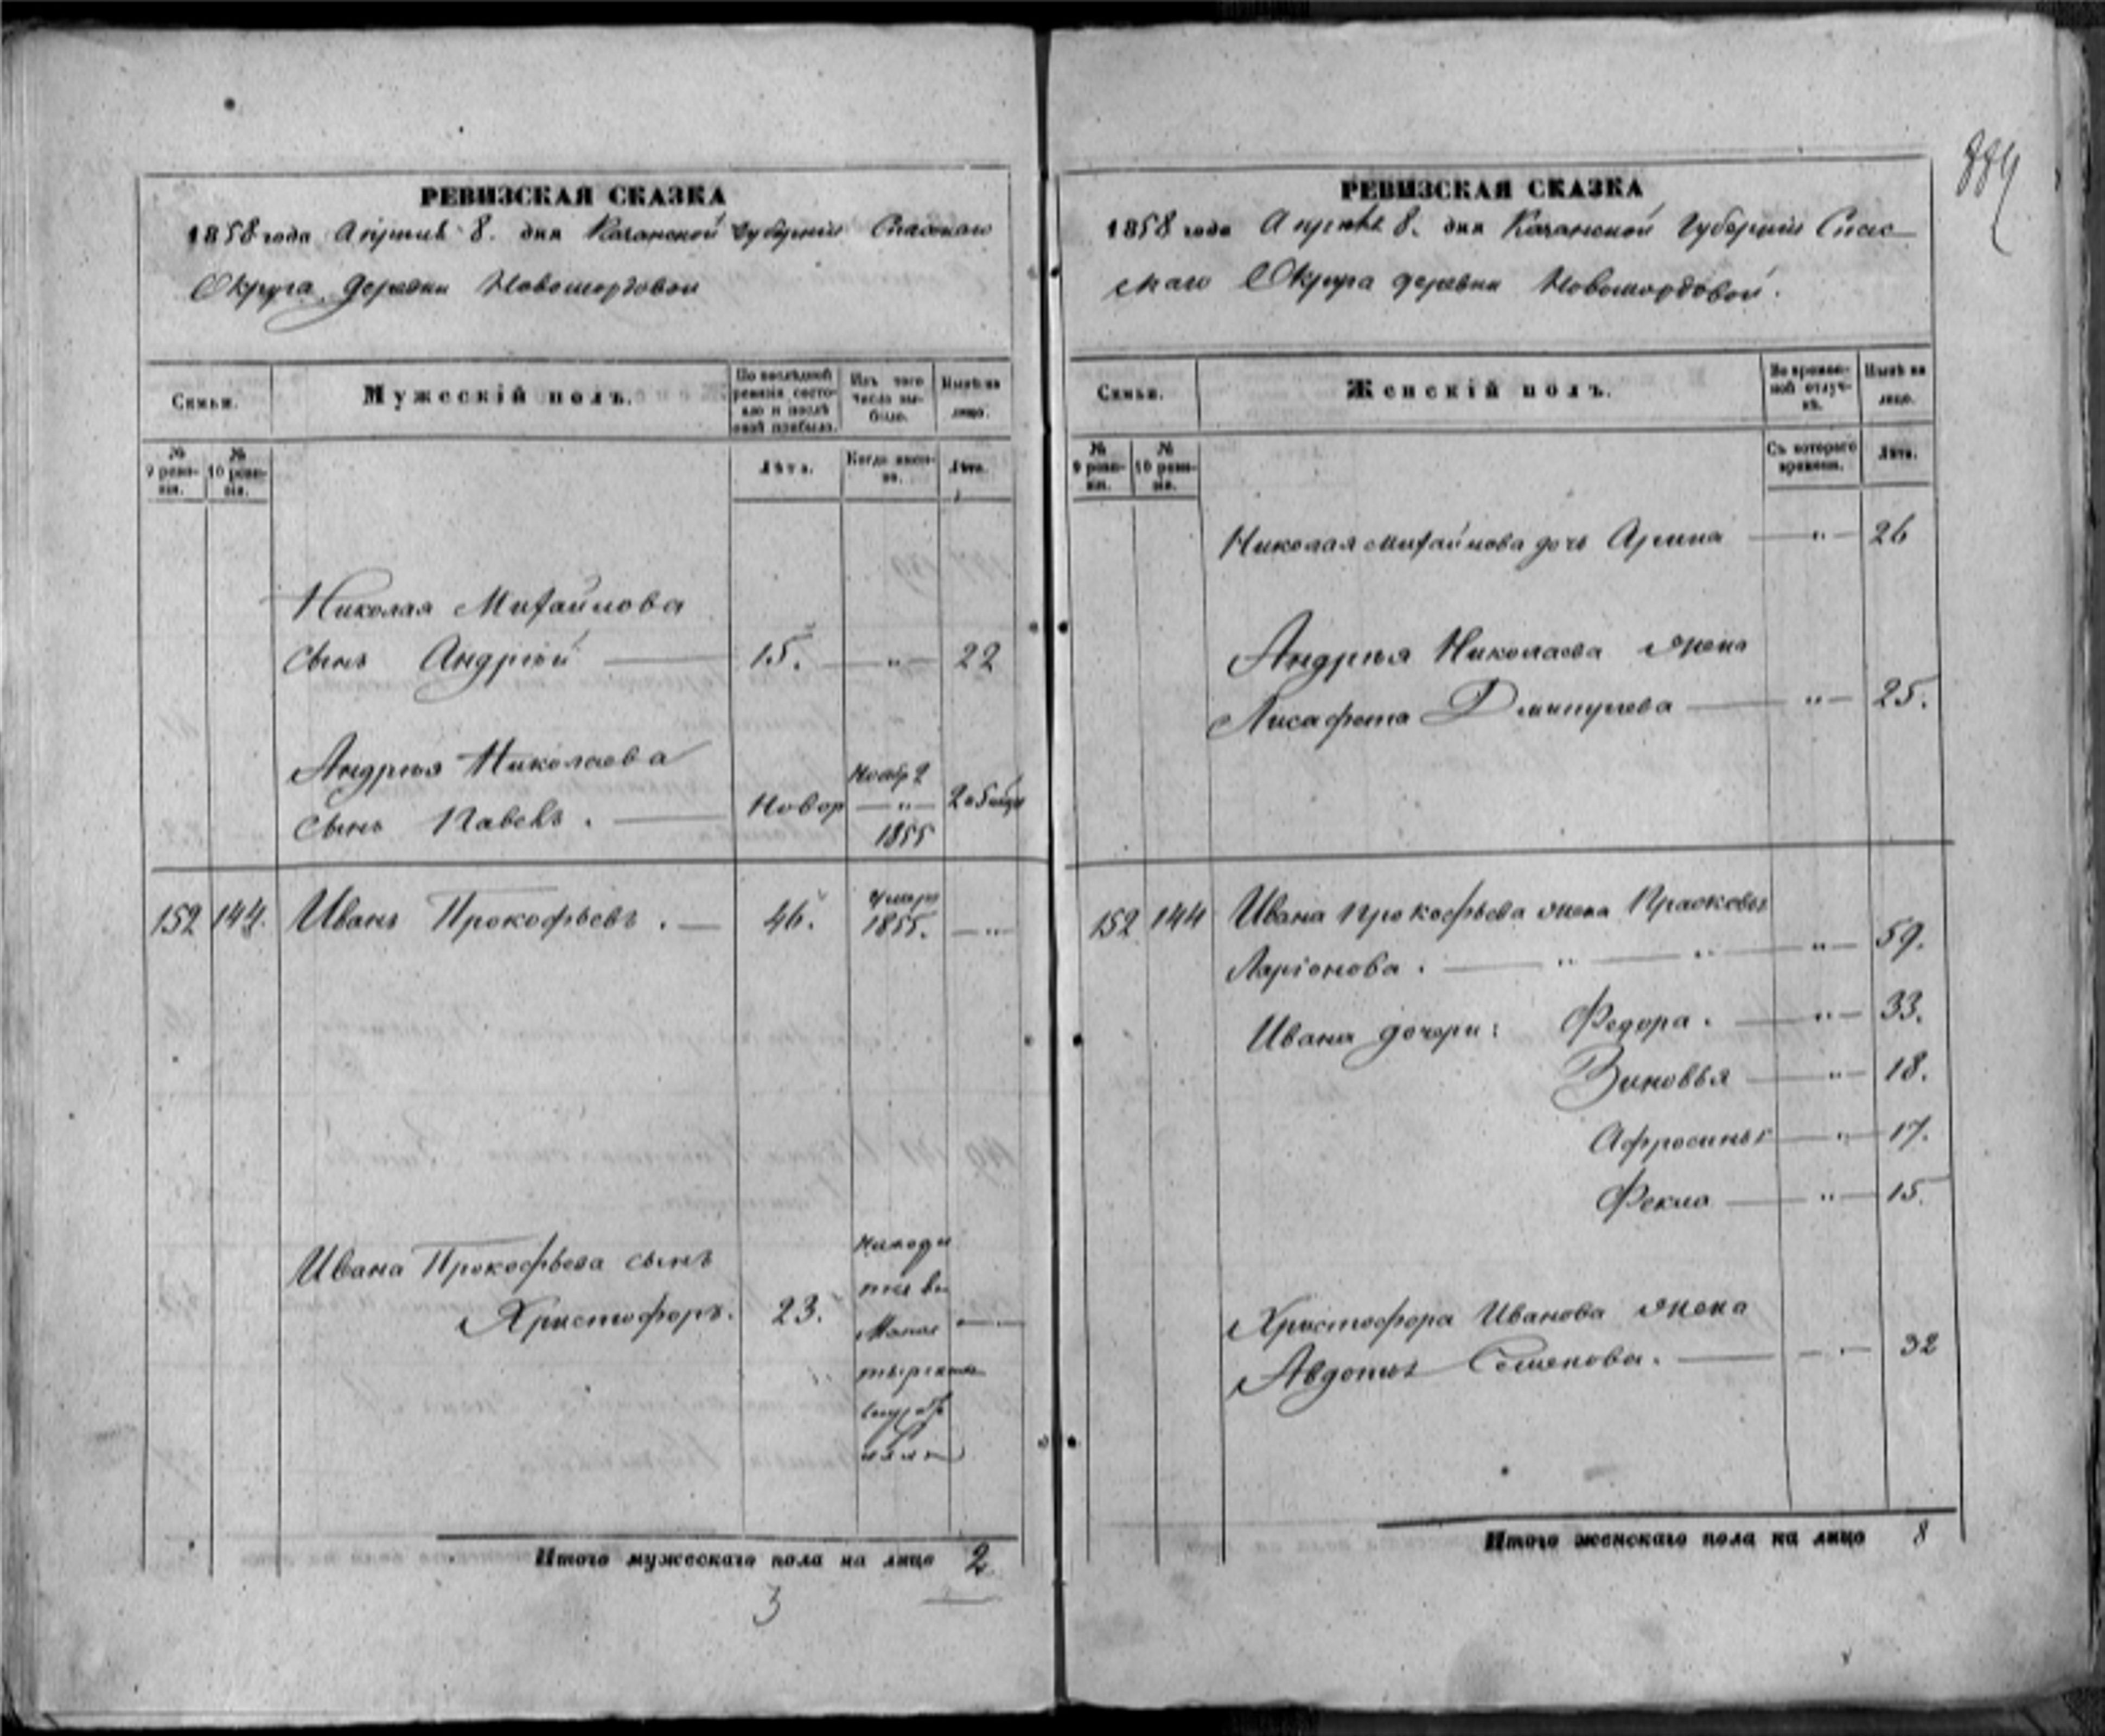 884
РЕВИЗСКАЯ СКАЗКА
1858 года Апреля 8. дня Казанской Губернии Спаскаго
Округа деревни Новомордовой
Семьи.
Мужескій полъ.
По послѣдней ревизіи состояло и послѣ оной прибыло.
Изъ того числа выбыло.
Нынѣ на лицо.
№ 9 ревизіи.
№ 10 ревизіи.
Лѣта.
Когда именно.
Лѣта.
Николая Михайлова
сынъ Андрей 15. " 22
Андрея Николаева
сынъ Павелъ. Новор Ноябр 2 " 1855
152 144. Иванъ Прокофьевъ. 46. умеръ 1855. "
Ивана Прокофьева сынъ
Христофоръ. 23.
находи
тся въ
Итого мужескаго пола на лицо 2
3
РЕВИЗСКАЯ СКАЗКА
1858 года Апреля 8. дня Казанской Губерніи Спас
скаго Округа деревни Новомордовой.
Семьи.
Женскій полъ.
Во временной отлучкѣ.
Нынѣ на лицо.
№ 9 ревизіи.
№ 10 ревизіи.
Съ котораго времени.
Лѣта.
Николая Михайлова дочь Арина " 26
Андрея Николаева жена
Лисафета Дмитриева " 25.
152 144 Ивана Прокофьева жена Прасковья
Ларіонова. " " " 59.
Ивана дочери: Федора. " 33.
Зиновья " 18.
Афросинья " 17.
Фекла " 15.
Христофора Иванова жена
Авдотья Семенова. " 32
Итого женскаго пола на лицо 8